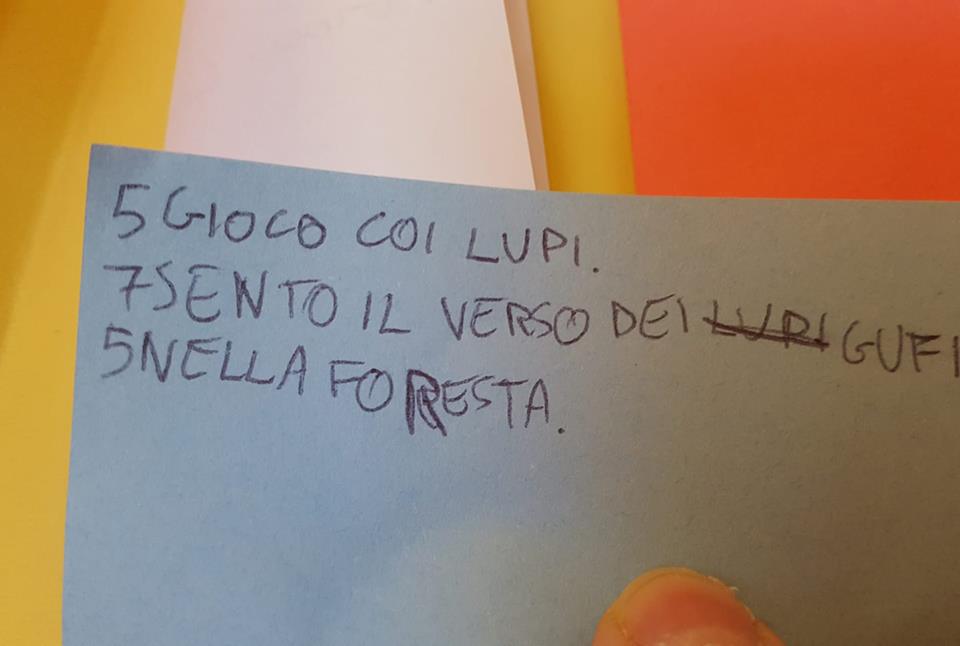 5 GIOCO COI LUPI.
7 SENTO IL VERSO DEI LUPI GUFI
5 NELLA FORESTA.